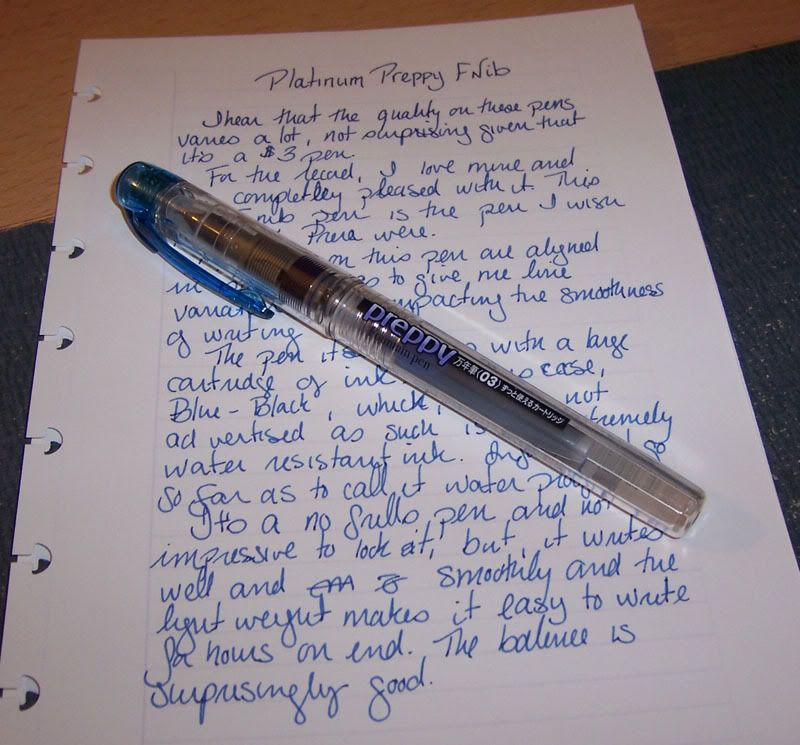 Platinum Preppy F Nib
I hear that the quality on these pens
varies a lot, not surprising given that
it's a $3 pen.
For the record, I love mine and
completley pleased with it. This
nib pen is the pen I wish
Prera were.
on this pen are aligned
in to give me line
variat impacting the smoothness
of writing
The pen its with a large
cartridge of ink case,
Blue-Black, which, not
advertised as such is extremely
water resistant ink. go
so far as to call it water proof
It's a no frills pen and not
impressive to look at, but, it writes
well and smoothly and the
light weight makes it easy to write
for hours on end. The balence is
surprisingly good.
preppy
platinum pen
万年筆(03)ずっと使えるカートリッジ